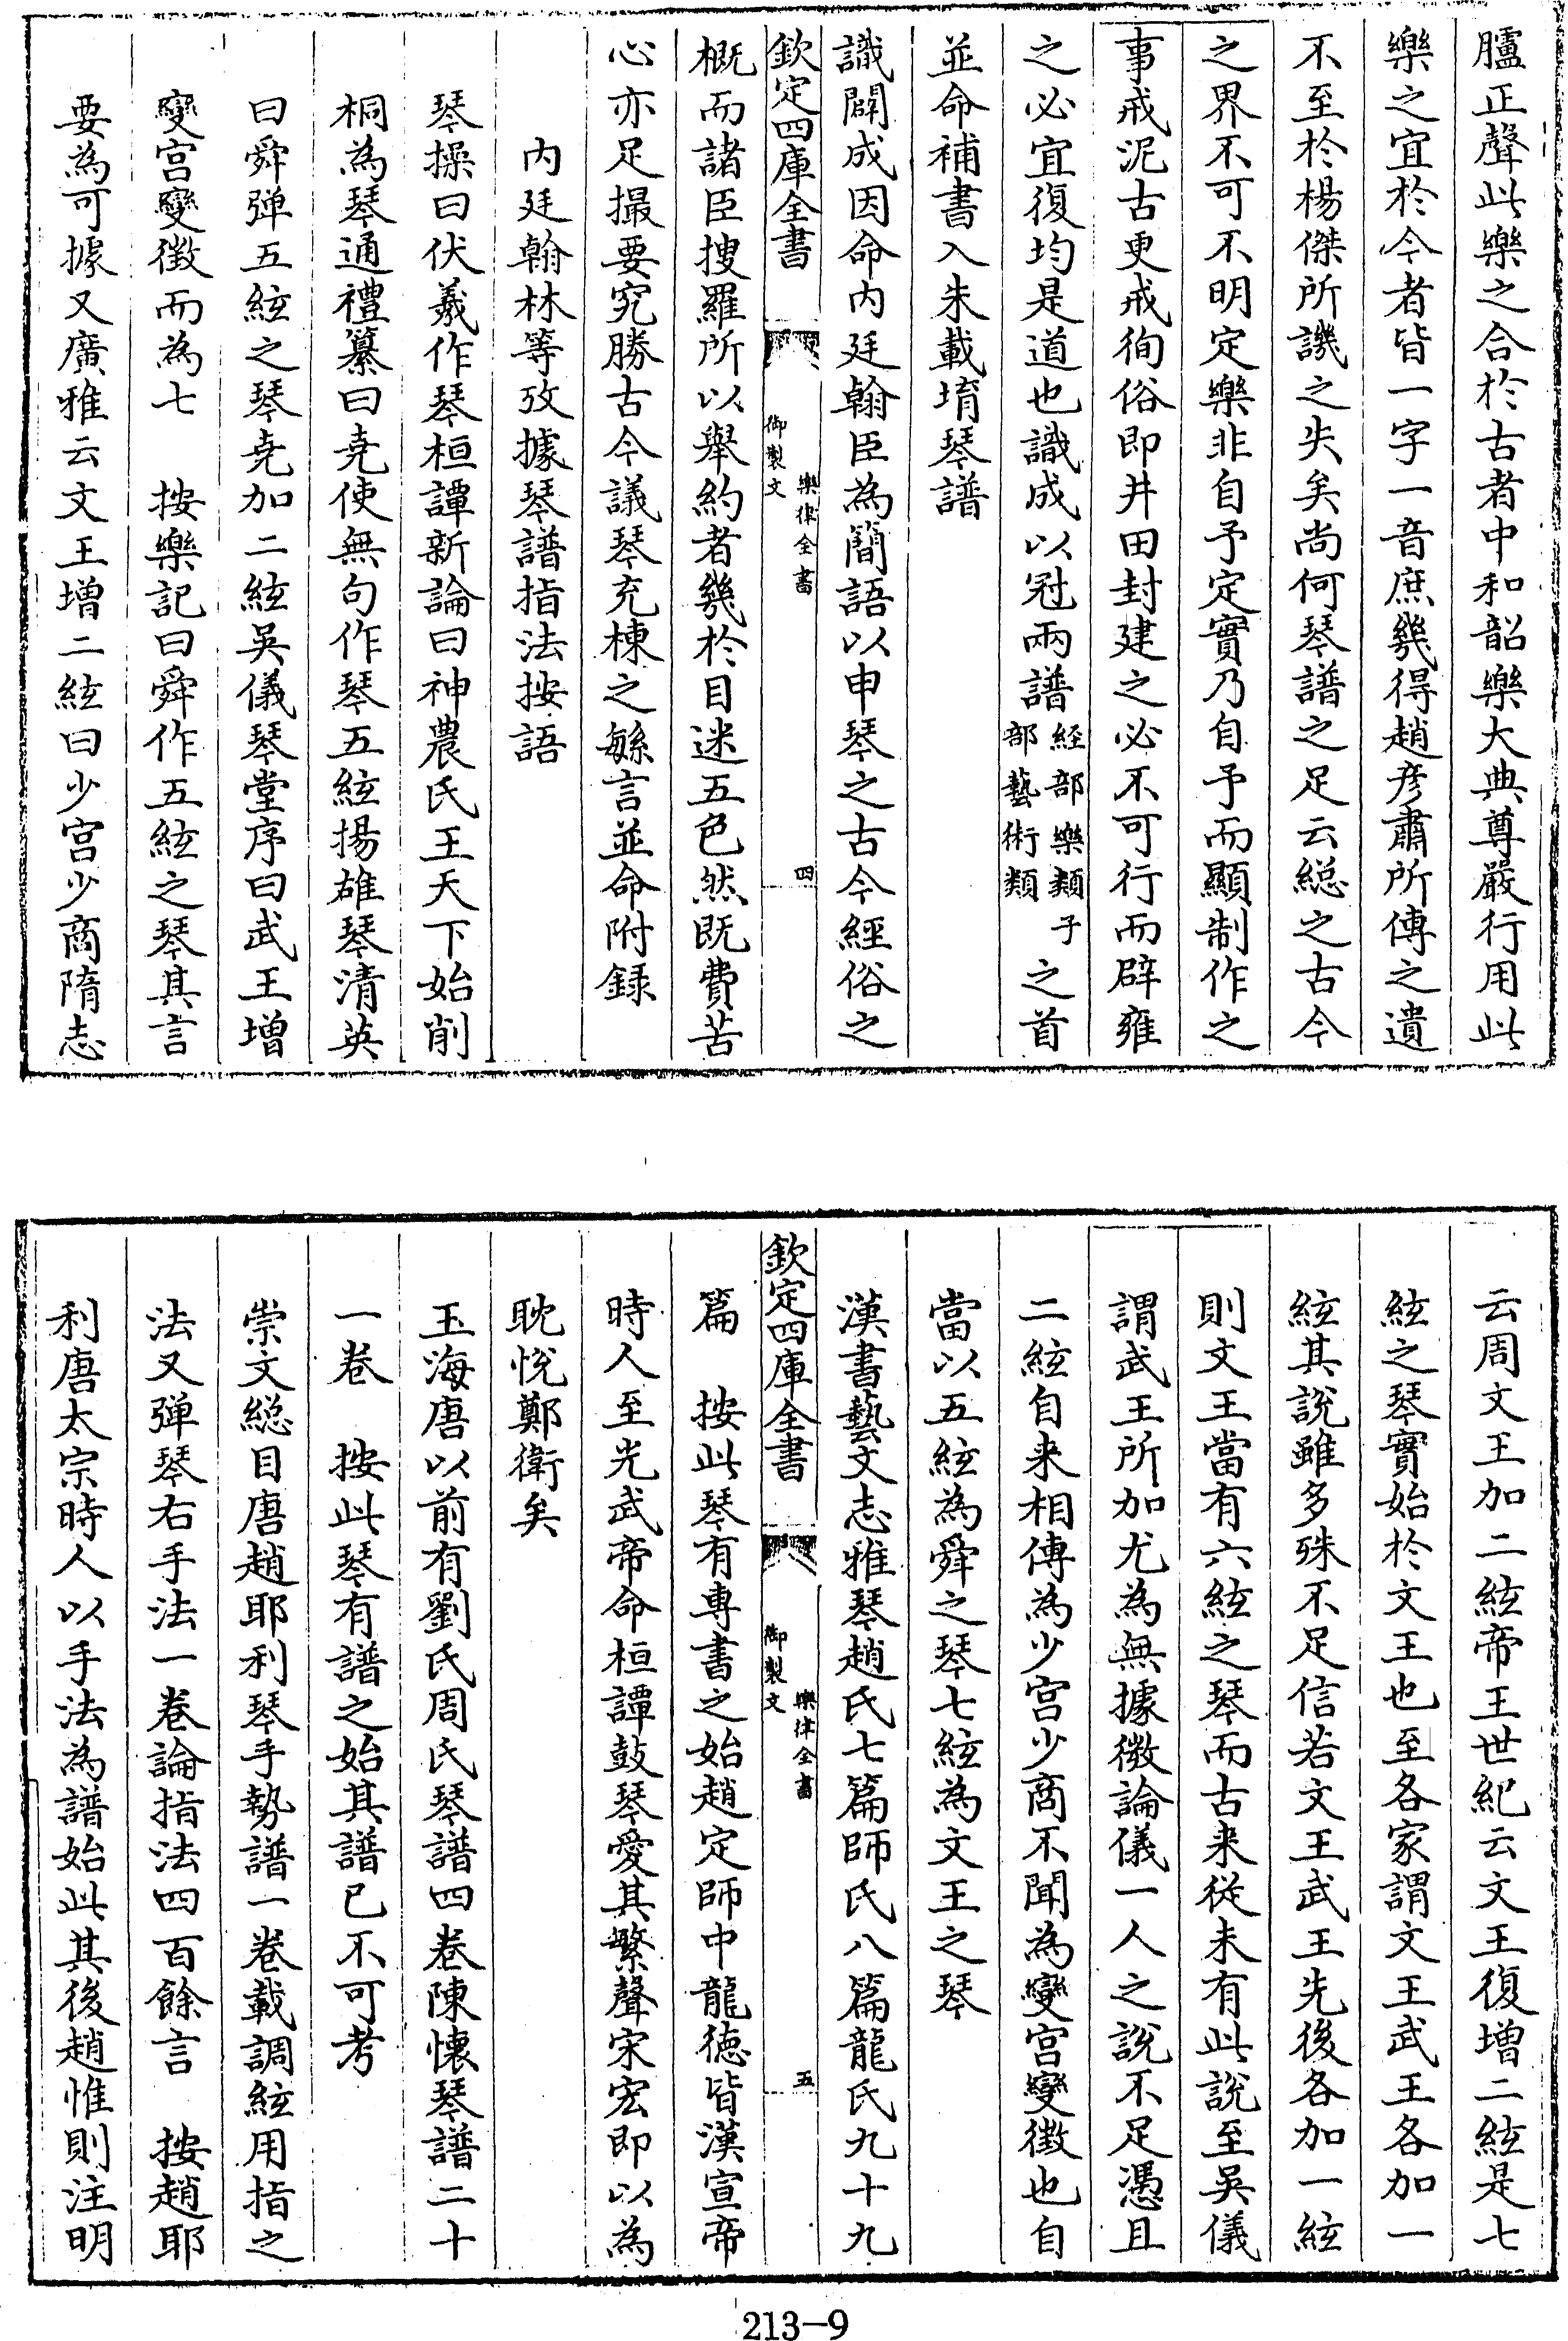 臚正聲此樂之合於古者中和韶樂大典尊嚴行用此
樂之宜於今者皆一字一音庶幾得趙彦肅所傳之遺
不至於楊傑所譏之失矣尚何琴譜之足云総之古今
之界不可不明定樂非自予定實乃自予而顯制作之
事戒泥古更戒徇俗即井田封建之必不可行而辟雍
之必宜復均是道也識成以冠兩譜經部樂類子部藝術類之首
並命補書入朱載堉琴譜
識闢成因命内廷翰臣為簡語以申琴之古今經俗之
欽定四庫全書
御製文
樂律全書
四
概而諸臣搜羅所以舉約者幾於目迷五色然既費苦
心亦足撮要究勝古今議琴充棟之緐言並命附録
内廷翰林等攷據琴譜指法按語
琴操曰伏羲作琴桓譚新論曰神農氏王天下始削
桐為琴通禮纂曰堯使無句作琴五絃揚雄琴清英
曰舜弹五絃之琴堯加二絃吳儀琴堂序曰武王增
變宫變徵而為七 按樂記曰舜作五絃之琴其言
要為可據又廣雅云文王增二絃曰少宫少商隋志
云周文王加二絃帝王世紀云文王復增二絃是七
絃之琴實始於文王也至各家謂文王武王各加一
絃其說雖多殊不足信若文王武王先後各加一絃
則文王當有六絃之琴而古来從未有此說至吳儀
謂武王所加尤為無據微論儀一人之說不足憑且
二絃自来相傳為少宫少商不聞為變宫變徵也自
當以五絃為舜之琴七絃為文王之琴
漢書藝文志雅琴趙氏七篇師氏八篇龍氏九十九
欽定四庫全書
御製文
樂律全書
五
篇 按此琴有專書之始趙定師中龍德皆漢宣帝
時人至光武帝命桓譚鼓琴愛其繁聲宋宏即以為
耽悅鄭衛矣
玉海唐以前有劉氏周氏琴譜四卷陳懷琴譜二十
一卷 按此琴有譜之始其譜已不可考
崇文総目唐趙耶利琴手勢譜一卷載調絃用指之
法又弹琴右手法一卷論指法四百餘言 按趙耶
利唐太宗時人以手法為譜始此其後趙惟則注明
213-9